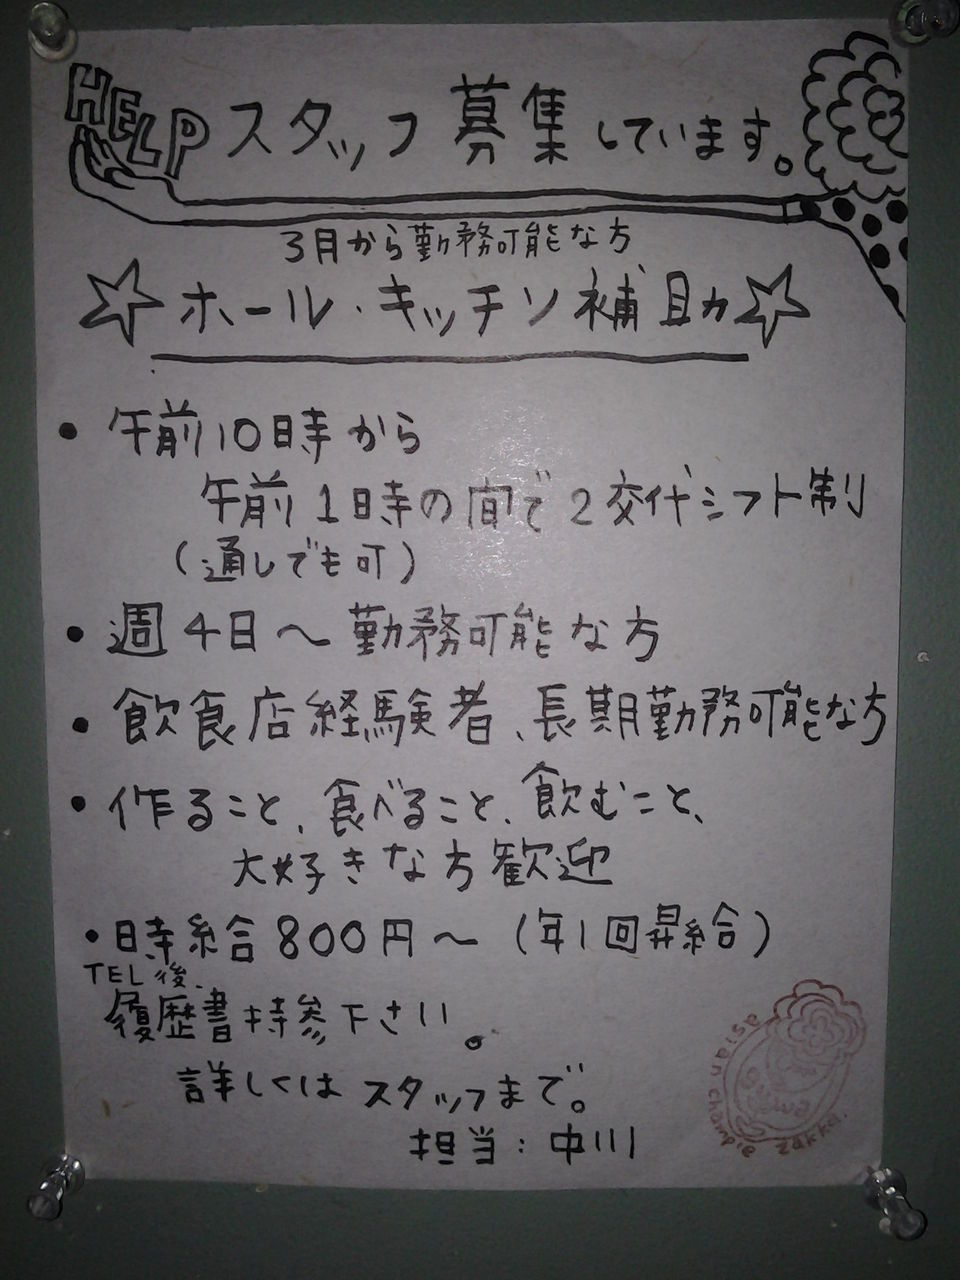 HELPスタッフ募集しています。
3月から勤務可能な方
ホール・キッチン補助
・午前10時から
午前1時の間で2交代シフト制
(通しでも可)
・週4日〜勤務可能な方
・飲食店経験者、長期勤務可能な方
・作ること、食べること、飲むこと、
大好きな方歓迎
・時給800円〜(年1回昇給)
TEL後、
履歴書持参下さい。
詳しくはスタッフまで。
担当:中川
asian chample zakka